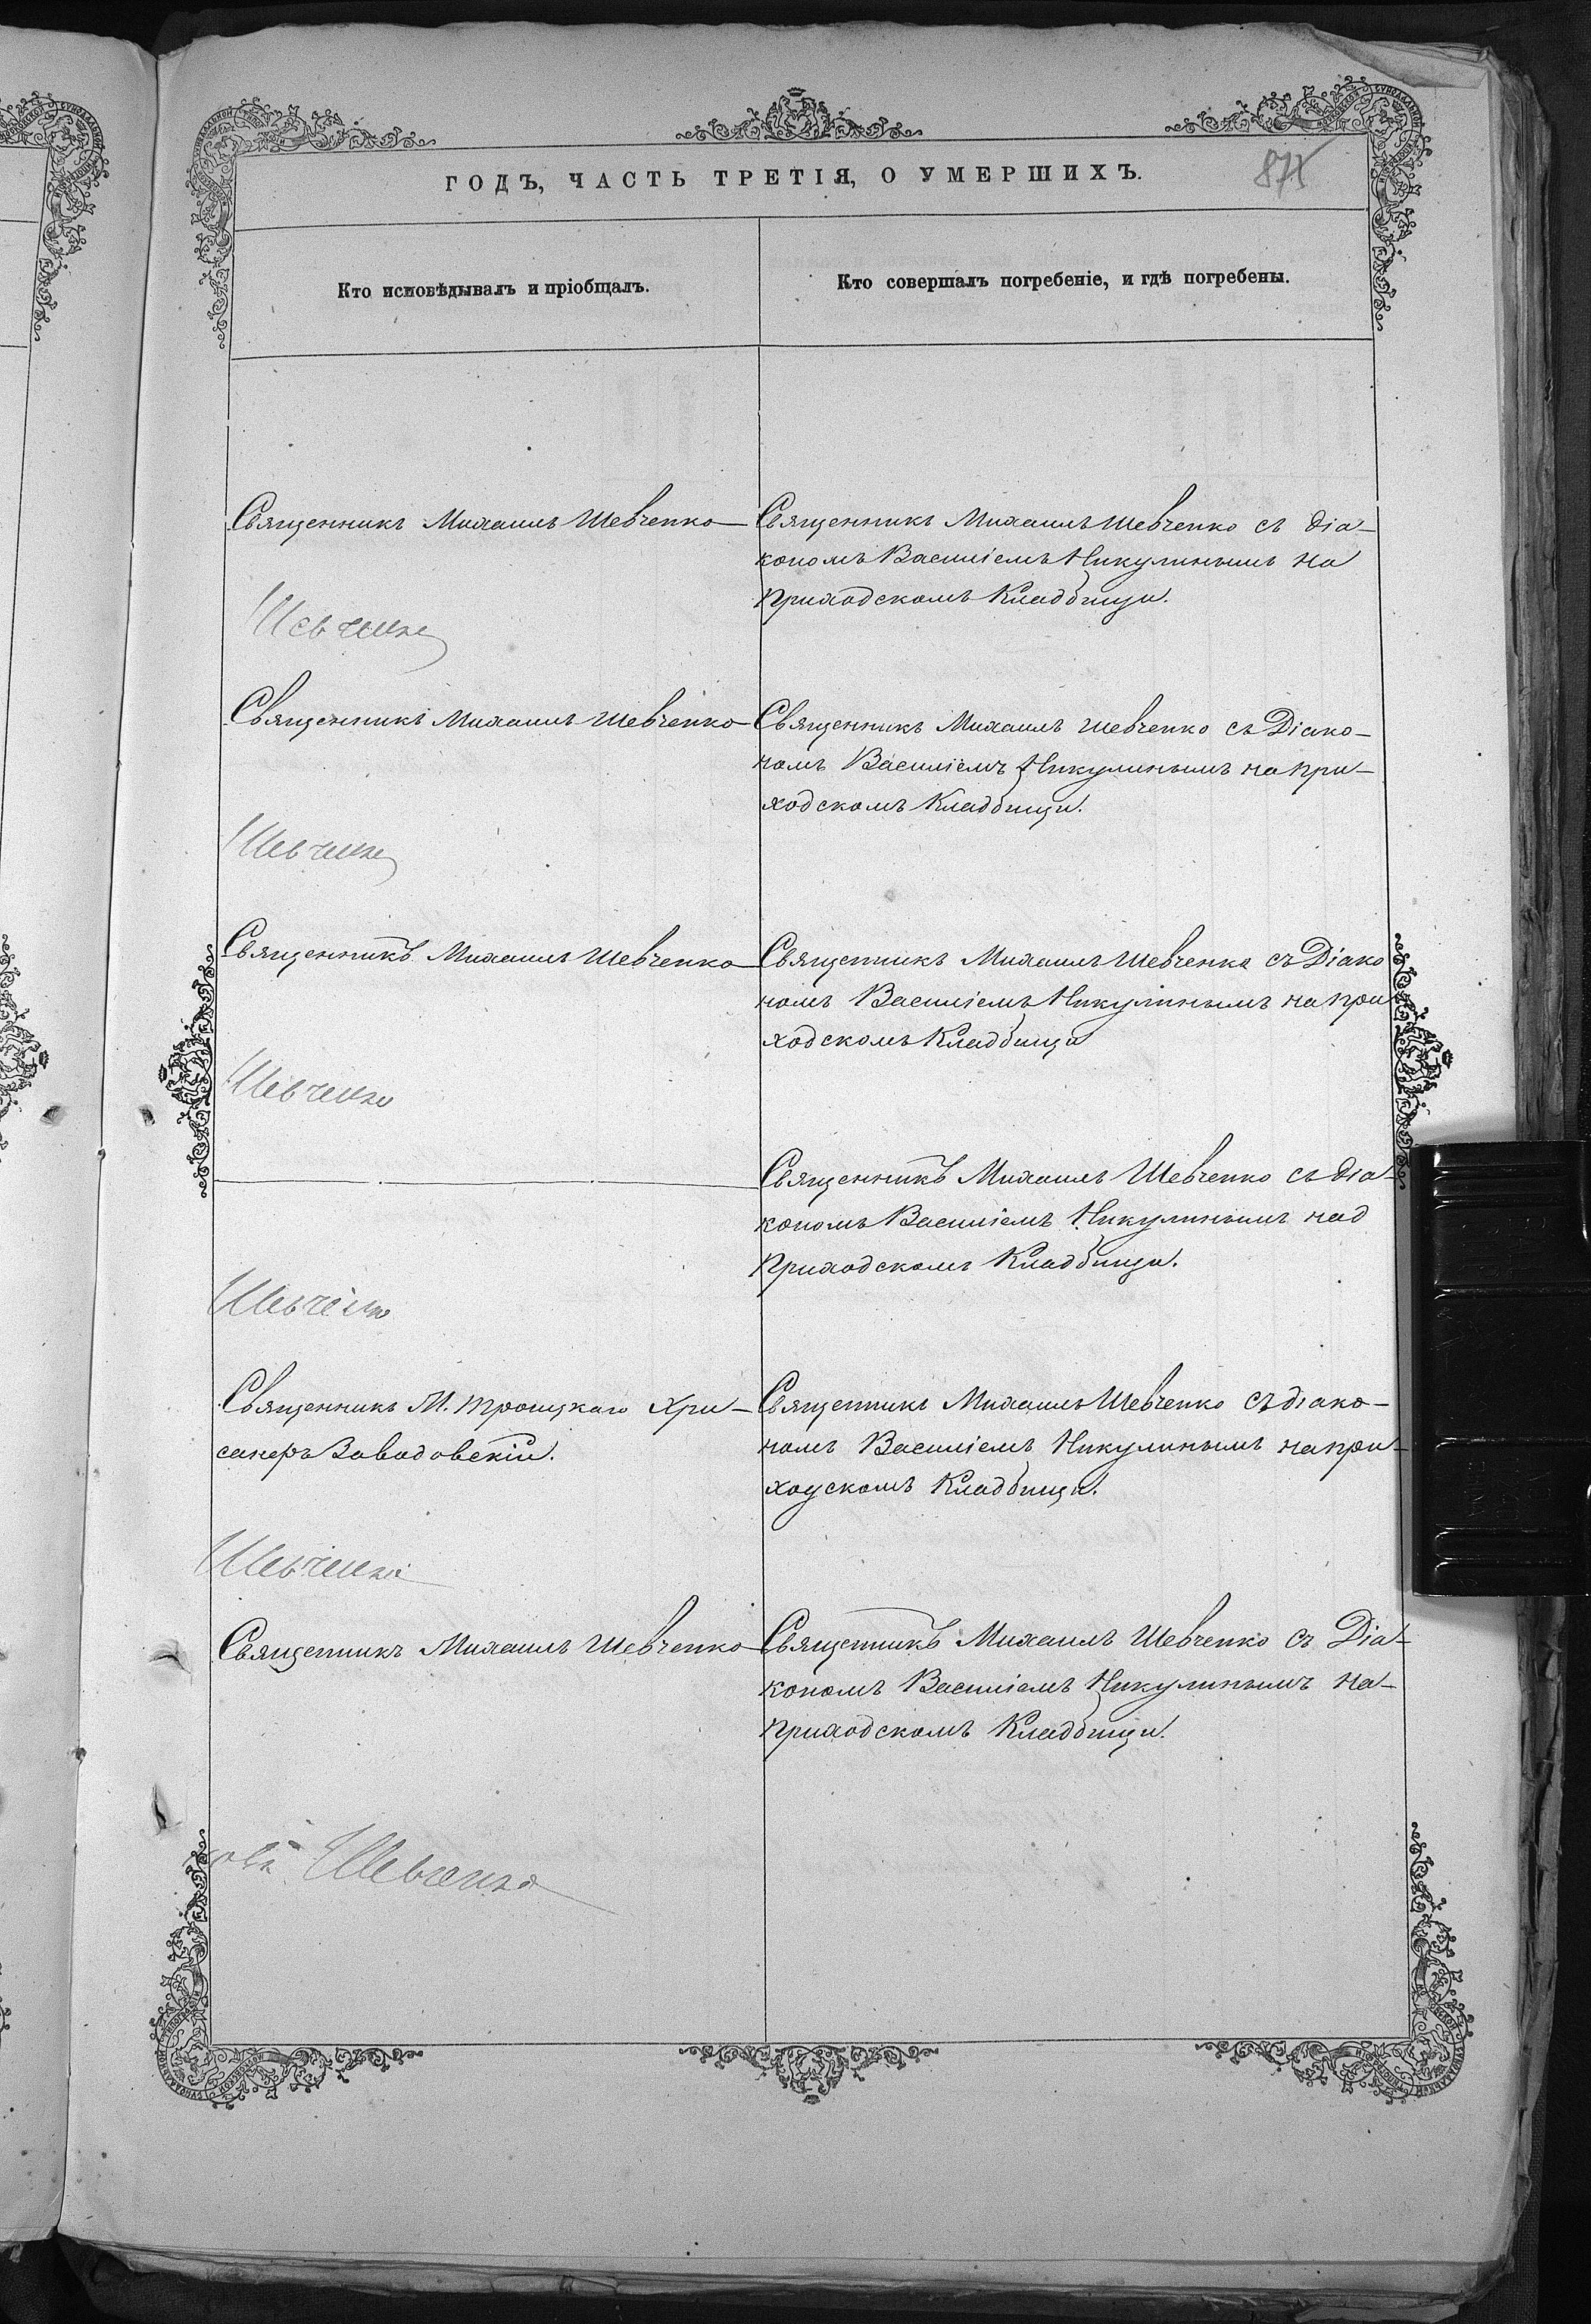 ГОДЪ, ЧАСТЬ ТРЕТІЯ, О УМЕРШИХЪ.
871
Кто исповѣдывалъ и пріобщалъ.
Кто совершалъ погребеніе, и гдѣ погребены.
Священникъ Михаилъ Шевченко
Священникъ Михаилъ Шевченко съ діа-
кономъ Василіемъ Никулинымъ на
приходскомъ Кладбищи.
Шевченко
Священникъ Михаилъ Шевченко
Священникъ Михаилъ Шевченко съ Діако-
номъ Василіемъ Никулинымъ на при-
ходскомъ Кладбищи.
Шевченко
Священникъ Михаилъ Шевченко
Священникъ Михаилъ Шевченко съ Діако
номъ Василіемъ Никулинымъ на при
ходскомъ Кладбищи
Шевченко
Священникъ Михаилъ Шевченко съ діа-
кономъ Василіемъ Никулинымъ над
приходскомъ Кладбищи.
Шевченко
Священникъ М. Троицкаго Хри-
санѳъ Заводовскій.
Священникъ Михаилъ Шевченко съ діако-
номъ Василіемъ Никулинымъ на при-
ходскомъ Кладбищи.
Шевченко
Священникъ Михаилъ Шевченко
Священникъ Михаилъ Шевченко съ Діа-
кономъ Василіемъ Никулинымъ на-
приходскомъ Кладбищи.
Шевченко